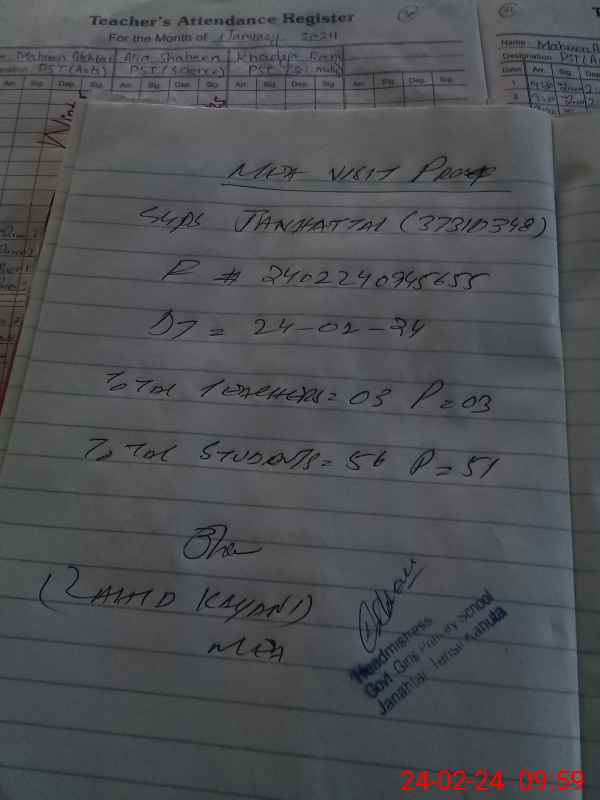 Teacher's Attendance Register
For the Month of January 2024
Maheen Akhtar Alia Shaheen Khadija
PST (Arts) PST (Science) PST
Arr. Sig. Dep. Sig. Arr. Sig. Dep. Sig. Arr. Sig. Dep. Sig. Arr. Sig. Dep. Sig.
Name: Maheen
Designation PST (
Date Arr. Sig. Dep. Sig.
1
2
MEA VISIT PROOF
GGPS JANHATTAL (37310348)
R # 2402240945655
DT = 24-02-24
TOTAL TEACHERS = 03 P = 03
TOTAL STUDENTS = 56 P = 51
(ZAHID KAYANI)
MEA
Headmistress
Govt. Girls Primary School
Janahtal Tehsil Kahuta
24-02-24 09:59